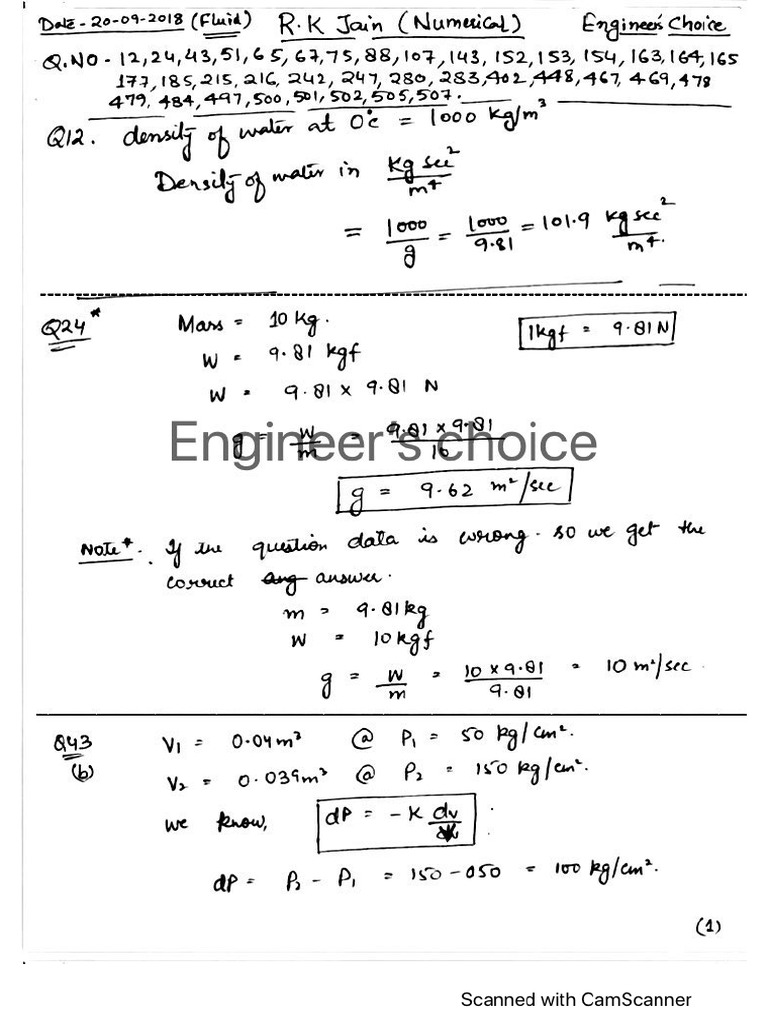 Date - 20-09-2018 (Fluid) R.K Jain (Numerical) Engineer's Choice
Q.NO - 12,24,43,51,65,67,75,88,107,143,152,153,154,163,164,165
177,185,215,216,242,247,280,283,402,448,467,469,478
479,484,497,500,501,502,505,507.
Q12. density of water at 0°c = 1000 kg/m³
Density of water in kg sec²/m⁴
= 1000/g = 1000/9.81 = 101.9 kg sec²/m⁴.
Q24* Mass = 10 kg. 1kgf = 9.81 N
W = 9.81 kgf
W = 9.81 x 9.81 N
g = W/m = 9.81 x 9.81/10
Engineer's choice
g = 9.62 m²/sec
Note*. If the question data is wrong. so we get the
correct answer.
m = 9.81kg
W = 10 kgf
g = W/m = 10 x 9.81/9.81 = 10 m²/sec.
Q43 V₁ = 0.04m³ @ P₁ = 50 kg/cm².
(b) V₂ = 0.039m³ @ P₂ = 150 kg/cm².
we know, dP = -K dv/v
dP = P₂ - P₁ = 150 - 050 = 100 kg/cm².
(1)
Scanned with CamScanner